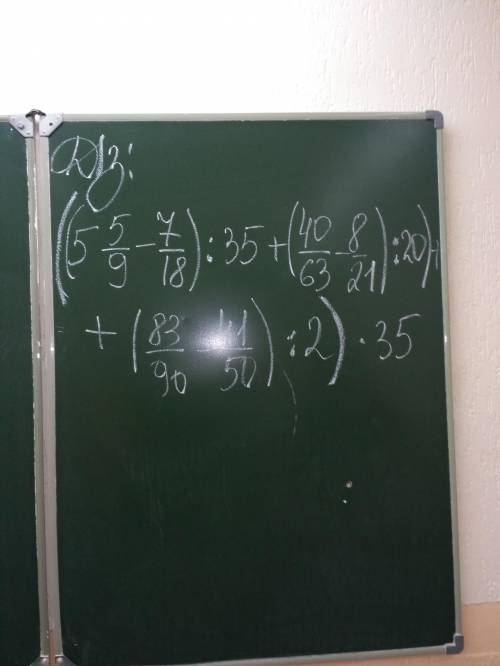 Д/з:
((5 5/9 - 7/18) : 35 + (40/63 - 8/21) : 20) +
+ (83/90 - 41/50) : 2) · 35